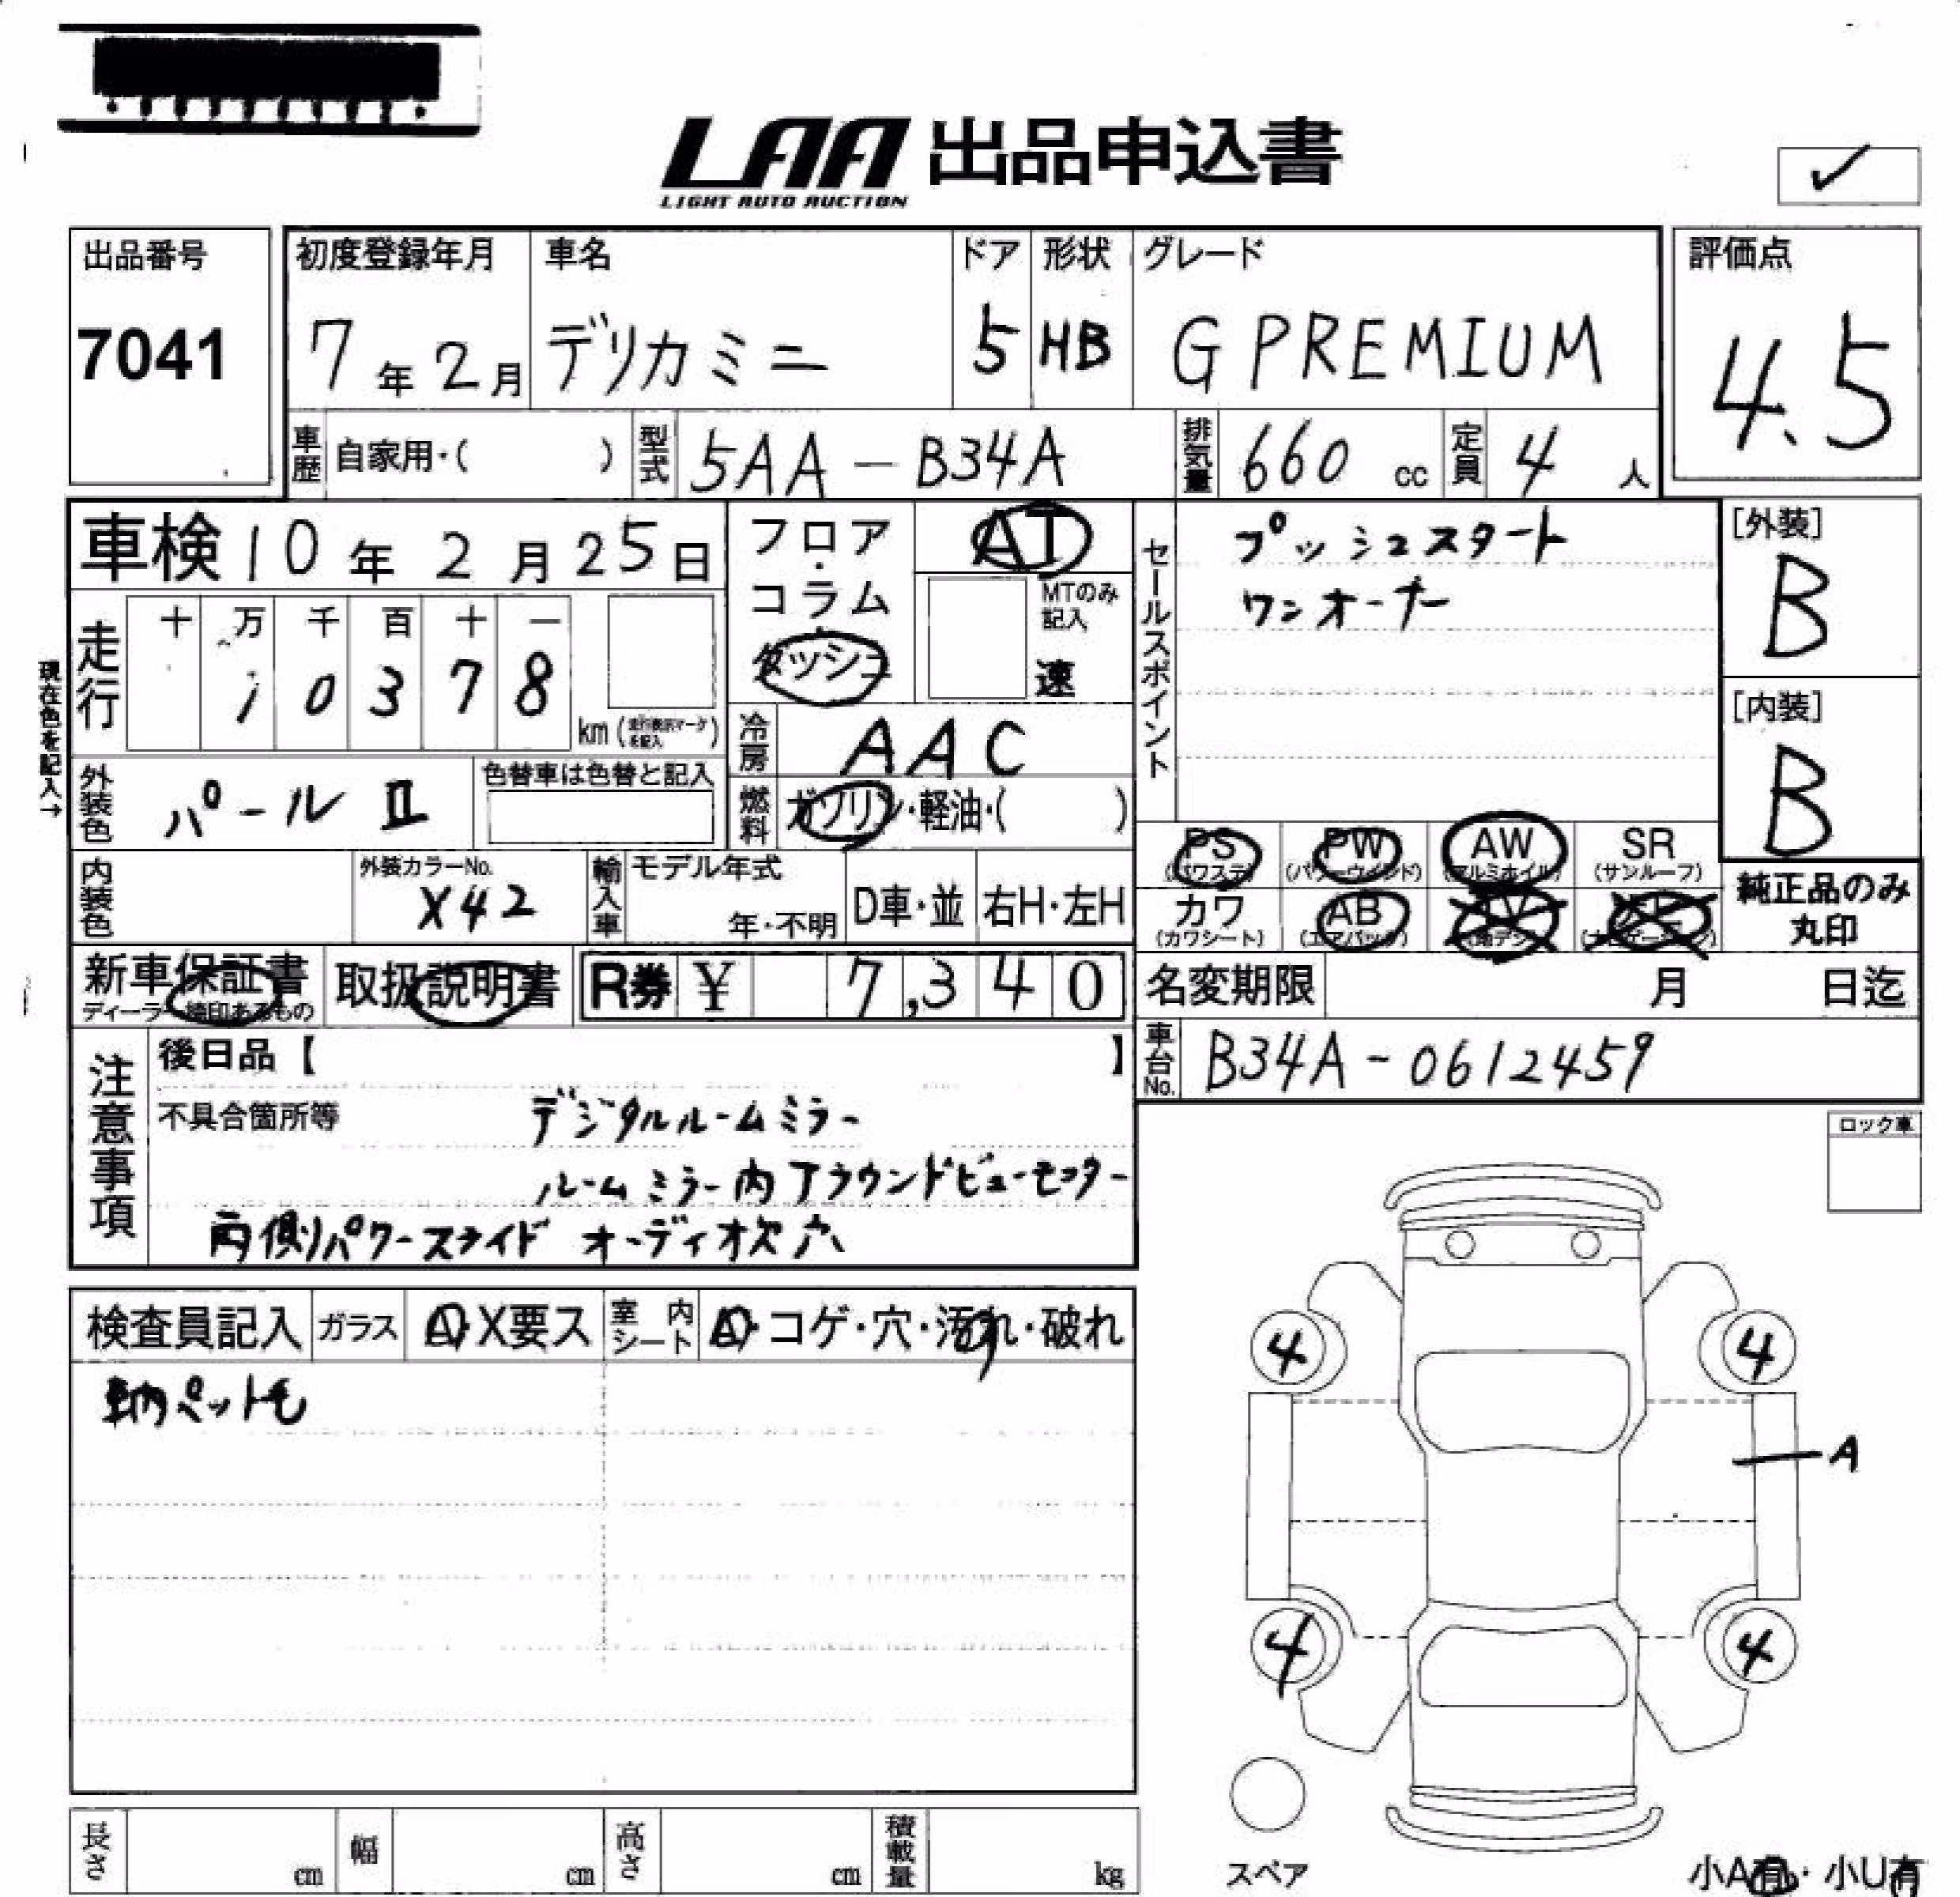 LAA 出品申込書
LIGHT AUTO AUCTION
✓
出品番号
7041
初度登録年月
7年2月
車名
デリカミニ
ドア
5
形状
HB
グレード
G PREMIUM
評価点
4.5
車歴 自家用・( )
型式 5AA-B34A
排気量 660 cc
定員 4 人
車検 10年2月25日
フロア・コラム・ダッシュ
AT
MTのみ記入
速
セールスポイント
プッシュスタート
ワンオーナー
[外装]
B
[内装]
B
現在色を記入→
走行
十 万 千 百 十 一
1 0 3 7 8
km
冷房 AAC
外装色 パールⅡ
色替車は色替と記入
燃料 ガソリン・軽油・( )
内装色
外装カラーNo.
X42
輸入車
モデル年式
年・不明
D車・並
右H・左H
PS (パワステ)
PW (パワーウィンド)
AW (アルミホイル)
SR (サンルーフ)
カワ (カワシート)
AB (エアバック)
純正品のみ丸印
新車保証書
ディーラー捺印あるもの
取扱説明書
R券 ¥ 7,340
名変期限 月 日迄
車台No. B34A-0612459
注意事項
後日品【 】
不具合箇所等
デジタルルームミラー
ルームミラー内アラウンドビューモニター
両側パワースライド オーディオ欠穴
ロック車
検査員記入
ガラス A・X要ス
室内シート A・コゲ・穴・汚れ・破れ
車内ペット毛
4
4
A
4
4
スペア
長さ cm
幅 cm
高さ cm
積載量 kg
小A有・小U有